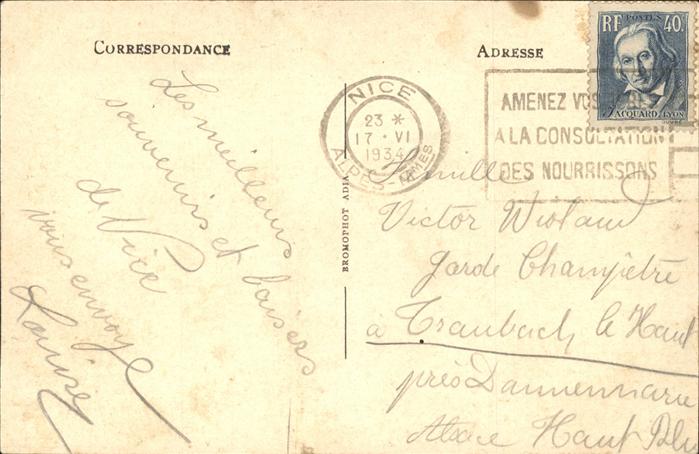 CORRESPONDANCE
Les meilleurs
souvenirs et baisers
de Nice
vous envoye
Louise
BROMOPHOT
ADRESSE
POSTES
RF 40c
JACQUARD LYON
NICE
23 *
17 · VI
1934
ALPES-MMES
AMENEZ VOS
A LA CONSULTATION
DES NOURRISSONS
Famille
Victor
Garde Champêtre
à Traubach le Haut
près Dannemarie
Alsace Haut Rhin